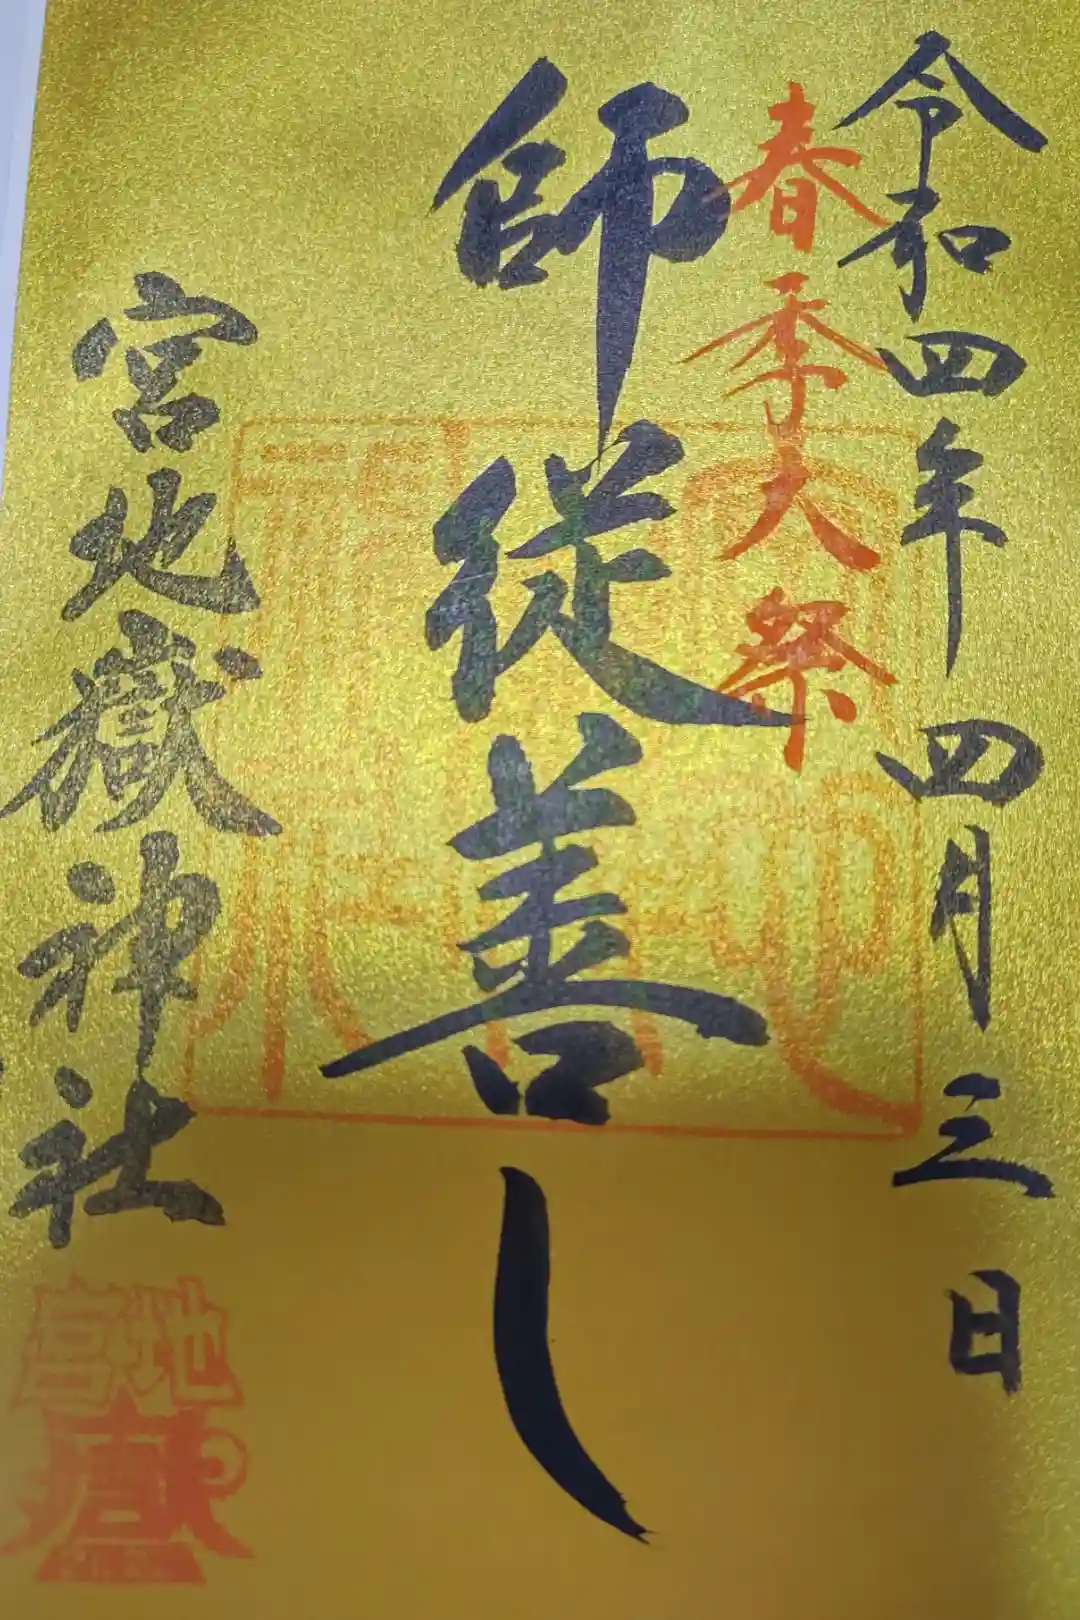 令和四年 四月三日
春季大祭
師従善し
宮地嶽神社
宮地
嶽